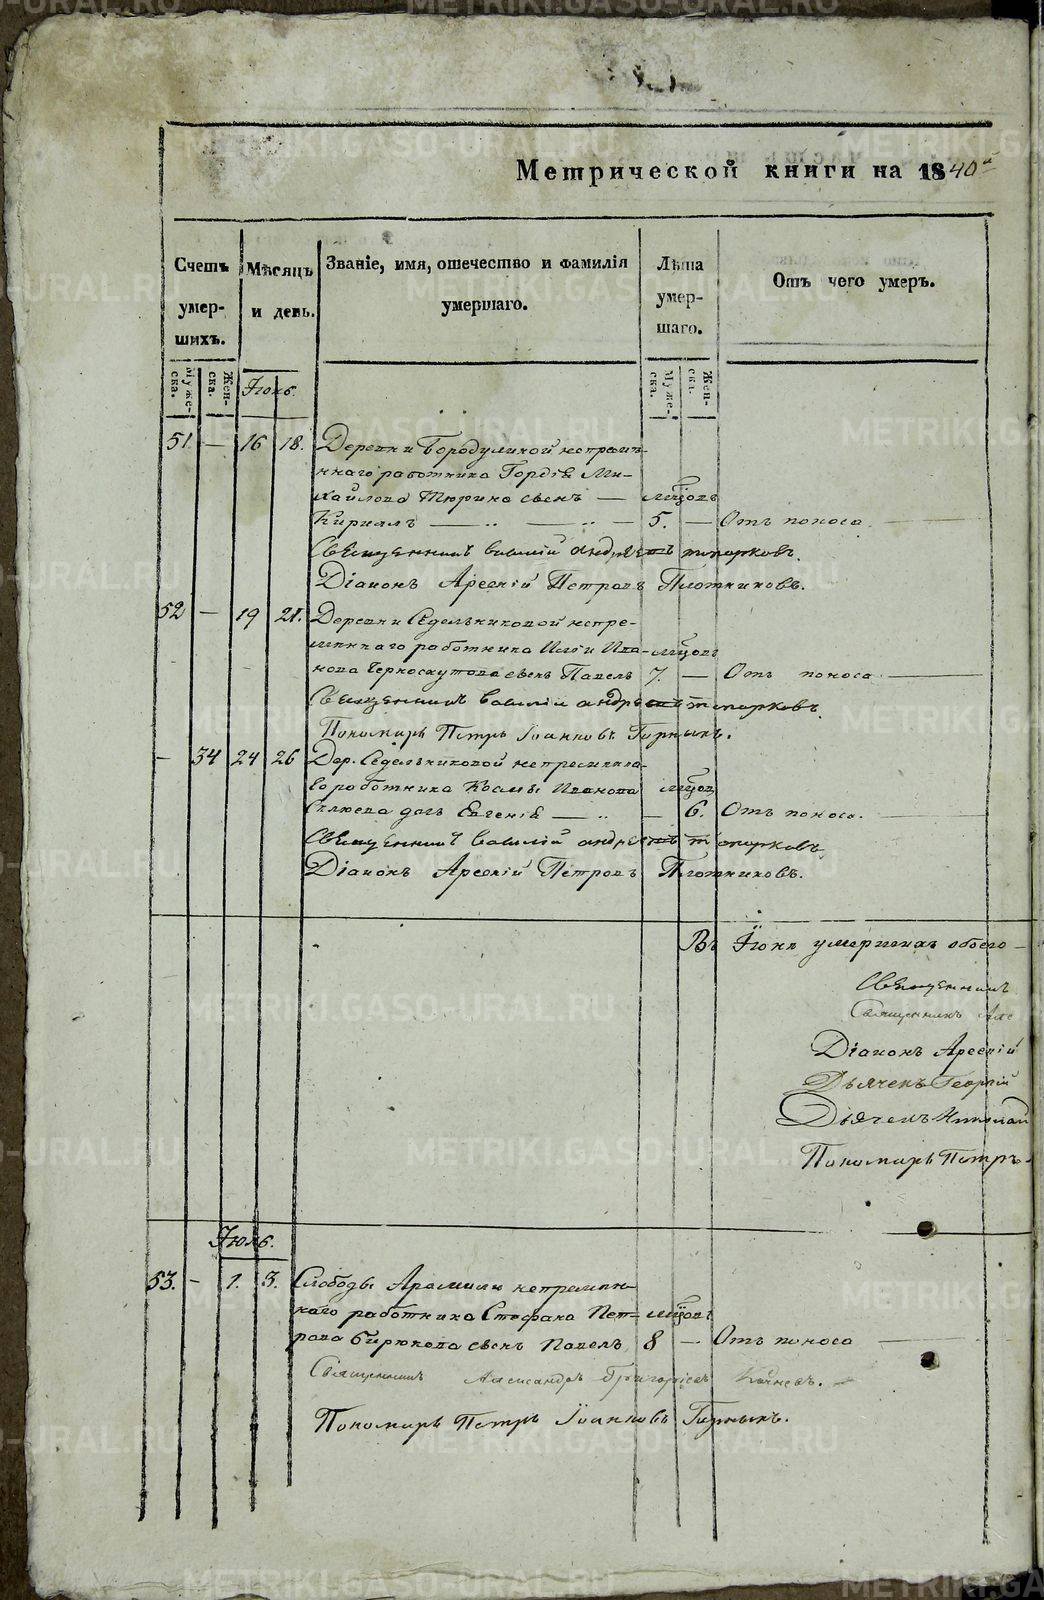 Метрической книги на 1840й
Счетъ умер-шихъ.
Мѣсяцъ и день.
Званіе, имя, отечество и фамилія умершаго.
Лѣта умер-шаго.
Отъ чего умеръ.
Муже-ска.
Жен-ска.
Муже-ска.
Жен-ска.
Іюнь.
51. — 16 18. Деревни Бородулиной непремѣ-
ннаго работника Гордѣя Ми-
хайлова Тюрина сынъ — мцовъ
Кирилъ — „ — „ — 5. — Отъ поноса.
Священникъ Василій Андреевъ Топорковъ.
Діаконъ Арсеній Петровъ Плотниковъ.
52 — 19 21. Деревни Седельниковой непре-
меннаго работника Иліи Ива- мцовъ
нова Черноскутова сынъ Павелъ 7. — Отъ поноса
Священникъ Василій Андреевъ Топорковъ.
Пономарь Петръ Іоанновъ
— 34 24 26 Дер. Седельниковой непременна-
го работника Космы Иванова мцов
дочь Евгенія — „ — 6. Отъ поноса.
Священникъ Василій Андреевъ Топорковъ.
Діаконъ Арсеній Петровъ Плотниковъ.
Въ Іюнѣ умершихъ обоего
Священникъ
Священникъ Але
Діаконъ Арсеній
Дьячекъ Георгій
Дьячекъ Николай
Пономарь Петръ
Іюль.
53. — 1. 3. Слободы Арамили непремен-
наго работника Стефана Пет- мцовъ
рова Бирюкова сынъ Павелъ 8 — Отъ поноса
Священникъ Александръ Григорьевъ
Пономарь Петръ Іоанновъ
METRIKI.GASO-URAL.RU